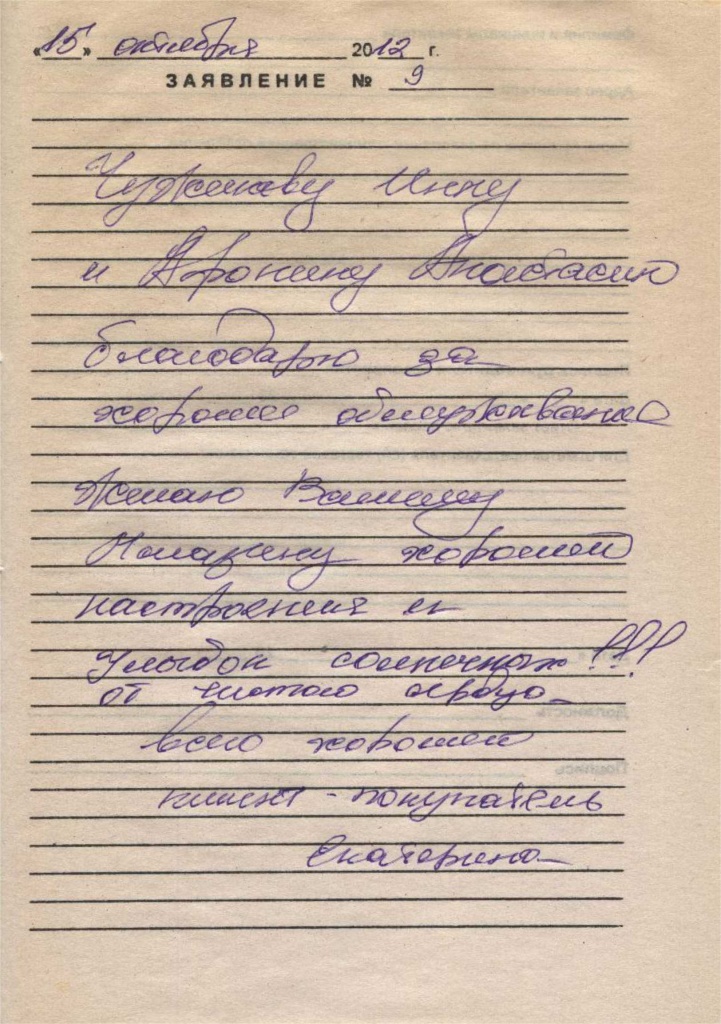 «15» октября 2012 г.
ЗАЯВЛЕНИЕ № 9
Инну
и Афонину Анастасию
благодарю за
хорошее обслуживание
Желаю Вашему
Магазину хорошего
настроения и
Улыбок солнечных!!!
от чистого сердца
всего хорошего
клиент - покупатель
Екатерина